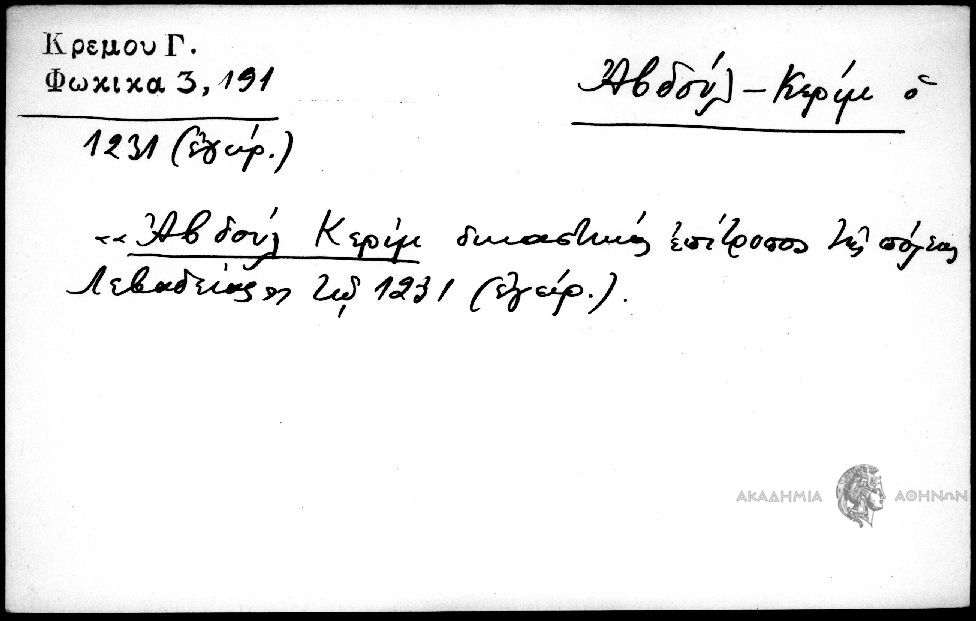 Κρεμου Γ.
Φωκικα 3, 191
Ἀβδούλ - Κερίμ ὁ
1231 (ἐγίρ.)
«Ἀβδούλ Κερίμ δικαστικός ἐπίτροπος τῆς πόλεως
Λεβαδείας» τῷ 1231 (ἐγίρ.).
ΑΚΑΔΗΜΙΑ ΑΘΗΝΩΝ